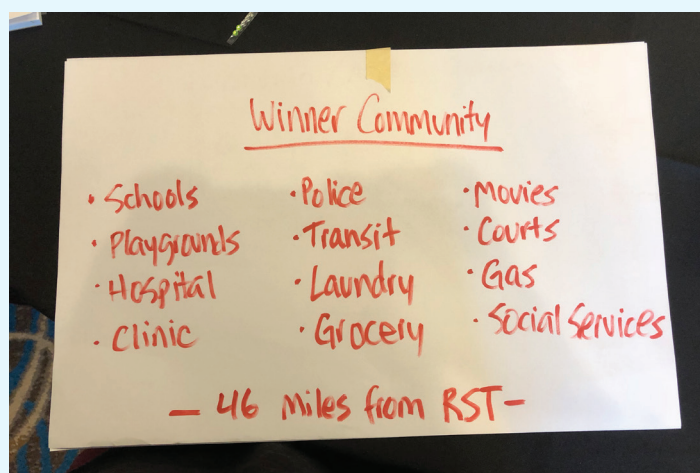 Winner Community
• Schools
• Playgrounds
• Hospital
• Clinic
• Police
• Transit
• Laundry
• Grocery
• Movies
• Courts
• Gas
• Social Services
— 46 Miles from RST —